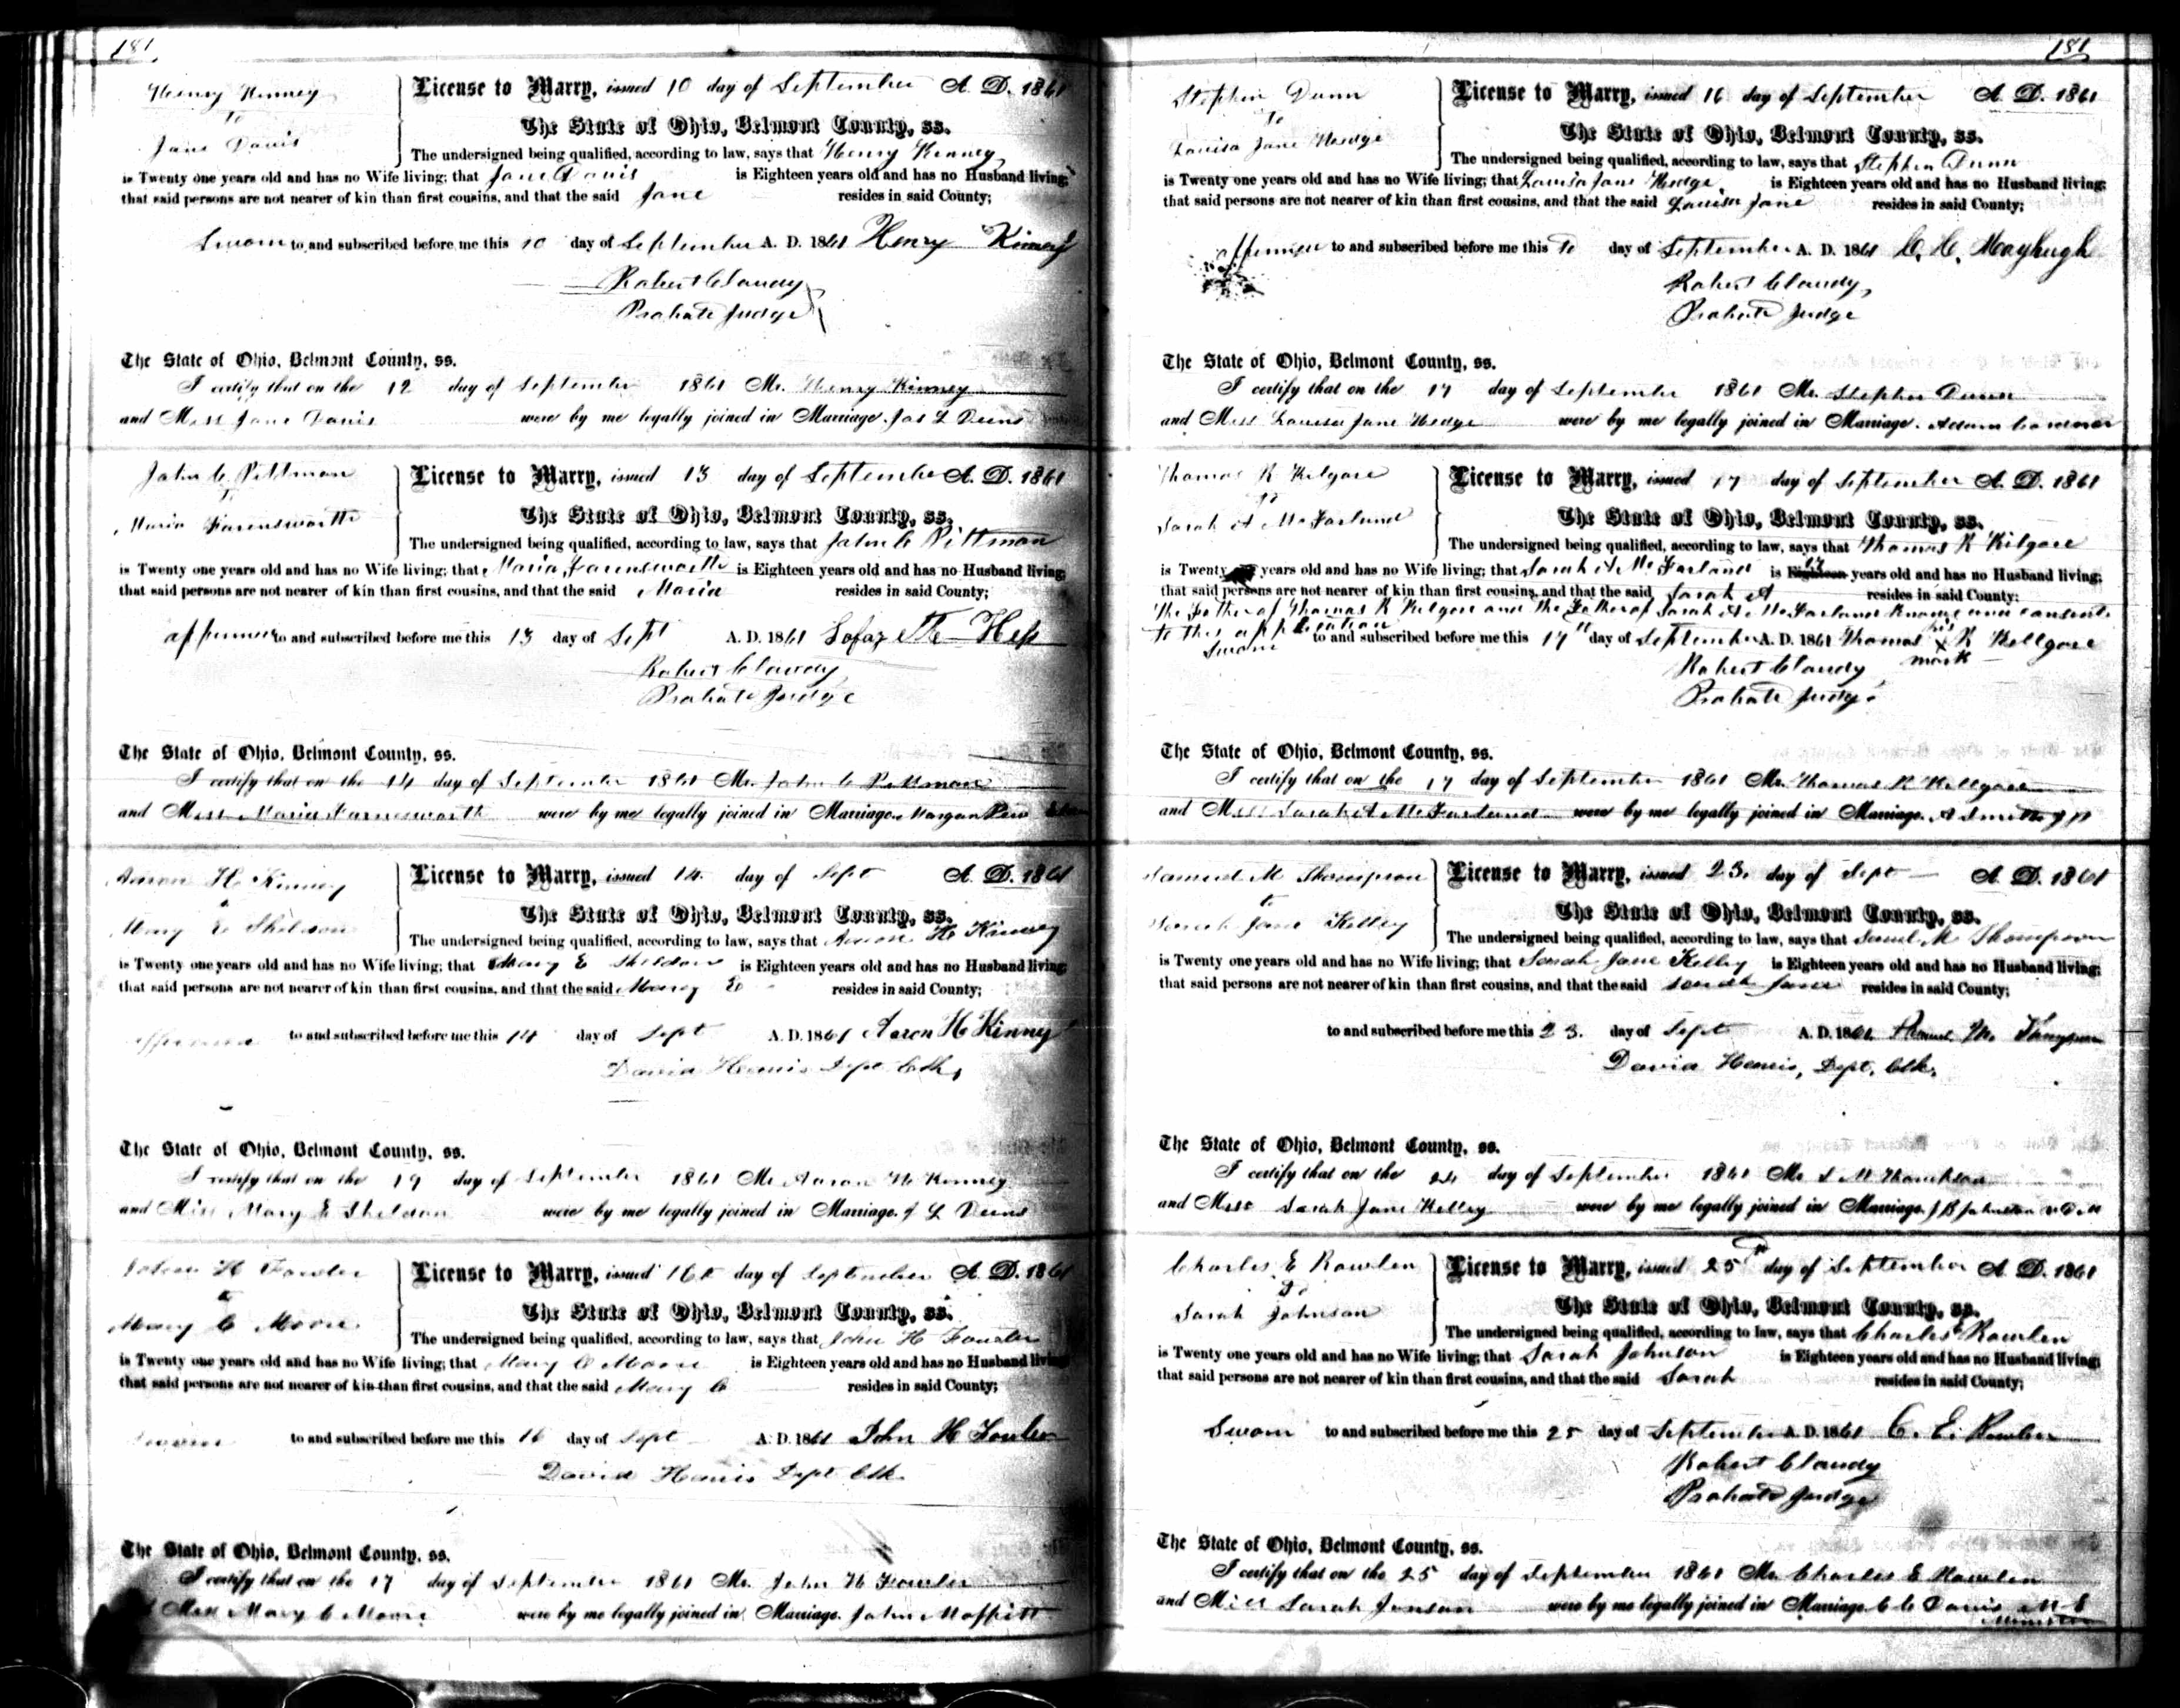 181.
Henry Kinney
To
Jane Davis
License to Marry, issued 10 day of September A. D. 1861
The State of Ohio, Belmont County, ss.
The undersigned being qualified, according to law, says that Henry Kinney
is Twenty one years old and has no Wife living; that Jane Davis is Eighteen years old and has no Husband living;
that said persons are not nearer of kin than first cousins, and that the said Jane resides in said County;
Sworn to and subscribed before me this 10 day of September A. D. 1861 Henry Kinney
Robert Claudy
Probate Judge
The State of Ohio, Belmont County, ss.
I certify that on the 12 day of September 1861 Mr. Henry Kinney
and Miss Jane Davis were by me legally joined in Marriage. Jas L Deens
John C Pittman
T
Maria Farensworth
License to Marry, issued 13 day of September A. D. 1861
The State of Ohio, Belmont County, ss.
The undersigned being qualified, according to law, says that John C Pittman
is Twenty one years old and has no Wife living; that Maria Farensworth is Eighteen years old and has no Husband living;
that said persons are not nearer of kin than first cousins, and that the said Maria resides in said County;
affirmed to and subscribed before me this 13 day of Sept A. D. 1861
Robert Claudy
Probate Judge
The State of Ohio, Belmont County, ss.
I certify that on the 14 day of September 1861 Mr. John C Pittman
and Miss Maria Farnesworth were by me legally joined in Marriage. Morgan
Aaron H. Kinney
to
Mary E Sheldon
License to Marry, issued 14 day of Sept A. D. 1861
The State of Ohio, Belmont County, ss.
The undersigned being qualified, according to law, says that Aaron H. Kinney
is Twenty one years old and has no Wife living; that Mary E Sheldon is Eighteen years old and has no Husband living;
that said persons are not nearer of kin than first cousins, and that the said Mary E resides in said County;
affirmed to and subscribed before me this 14 day of Sept A. D. 1861 Aaron H Kinney
David Harris Dept Clk,
The State of Ohio, Belmont County, ss.
I certify that on the 19 day of September 1861 Mr. Aaron H Kinney
and Miss Mary E Sheldon were by me legally joined in Marriage. J L Deens
John H Fowler
to
Mary C Moore
License to Marry, issued 16th day of September A. D. 1861
The State of Ohio, Belmont County, ss.
The undersigned being qualified, according to law, says that John H Fowler
is Twenty one years old and has no Wife living; that Mary C Moore is Eighteen years old and has no Husband living;
that said persons are not nearer of kin than first cousins, and that the said Mary C resides in said County;
Sworn to and subscribed before me this 16 day of Sept A. D. 1861 John H Fowler
David Harris Dept Clk.
The State of Ohio, Belmont County, ss.
I certify that on the 17 day of September 1861 Mr. John H Fowler
Miss Mary C Moore were by me legally joined in Marriage. John Moffitt
181
Stephen Dunn
To
Louisa Jane Hedge
License to Marry, issued 16 day of September A. D. 1861
The State of Ohio, Belmont County, ss.
The undersigned being qualified, according to law, says that Stephen Dunn
is Twenty one years old and has no Wife living; that Louisa Jane Hedge is Eighteen years old and has no Husband living;
that said persons are not nearer of kin than first cousins, and that the said Louisa Jane resides in said County;
affirmed to and subscribed before me this day of September A. D. 1861 C. C. Mayhugh
Robert Claudy,
Probate Judge
The State of Ohio, Belmont County, ss.
I certify that on the 17 day of September 1861 Mr. Stephen Dunn
and Miss Louisa Jane Hedge were by me legally joined in Marriage. Adam
Thomas R Kilgore
To
Sarah A McFarland
License to Marry, issued 17 day of September A. D. 1861
The State of Ohio, Belmont County, ss.
The undersigned being qualified, according to law, says that Thomas R Kilgore
is Twenty years old and has no Wife living; that Sarah A McFarland is 17 years old and has no Husband living;
that said persons are not nearer of kin than first cousins, and that the said Sarah A resides in said County;
The Father of Thomas R Kilgore and the Father of Sarah A McFarland and consents
to this application
Sworn to and subscribed before me this 17th day of September A. D. 1861 Thomas his X mark R Kellgore
Robert Claudy
Probate Judge.
The State of Ohio, Belmont County, ss.
I certify that on the 17 day of September 1861 Mr. Thomas R Kellgore
and Miss Sarah A McFarland were by me legally joined in Marriage. A Smith J P
Samuel M Thompson
to
Sarah Jane Kelley
License to Marry, issued 23. day of Sept A. D. 1861
The State of Ohio, Belmont County, ss.
The undersigned being qualified, according to law, says that Saml M Thompson
is Twenty one years old and has no Wife living; that Sarah Jane Kelley is Eighteen years old and has no Husband living;
that said persons are not nearer of kin than first cousins, and that the said Sarah Jane resides in said County;
to and subscribed before me this 23. day of Sept A. D. 1861 Samuel M. Thompson
David Harris, Dept. Clk.
The State of Ohio, Belmont County, ss.
I certify that on the 24 day of September 1861 Mr. S M Thompson
and Miss Sarah Jane Kelley were by me legally joined in Marriage. J B Johnston
Charles E Rowlen
To
Sarah Johnson
License to Marry, issued 25th day of September A. D. 1861
The State of Ohio, Belmont County, ss.
The undersigned being qualified, according to law, says that Charles E Rowlen
is Twenty one years old and has no Wife living; that Sarah Johnson is Eighteen years old and has no Husband living;
that said persons are not nearer of kin than first cousins, and that the said Sarah resides in said County;
Sworn to and subscribed before me this 25 day of September A. D. 1861 C. E. Rowlen
Robert Claudy
Probate Judge
The State of Ohio, Belmont County, ss.
I certify that on the 25 day of September 1861 Mr. Charles E Rowlen
and Miss Sarah Jonson were by me legally joined in Marriage. C C Davis M E
Minister